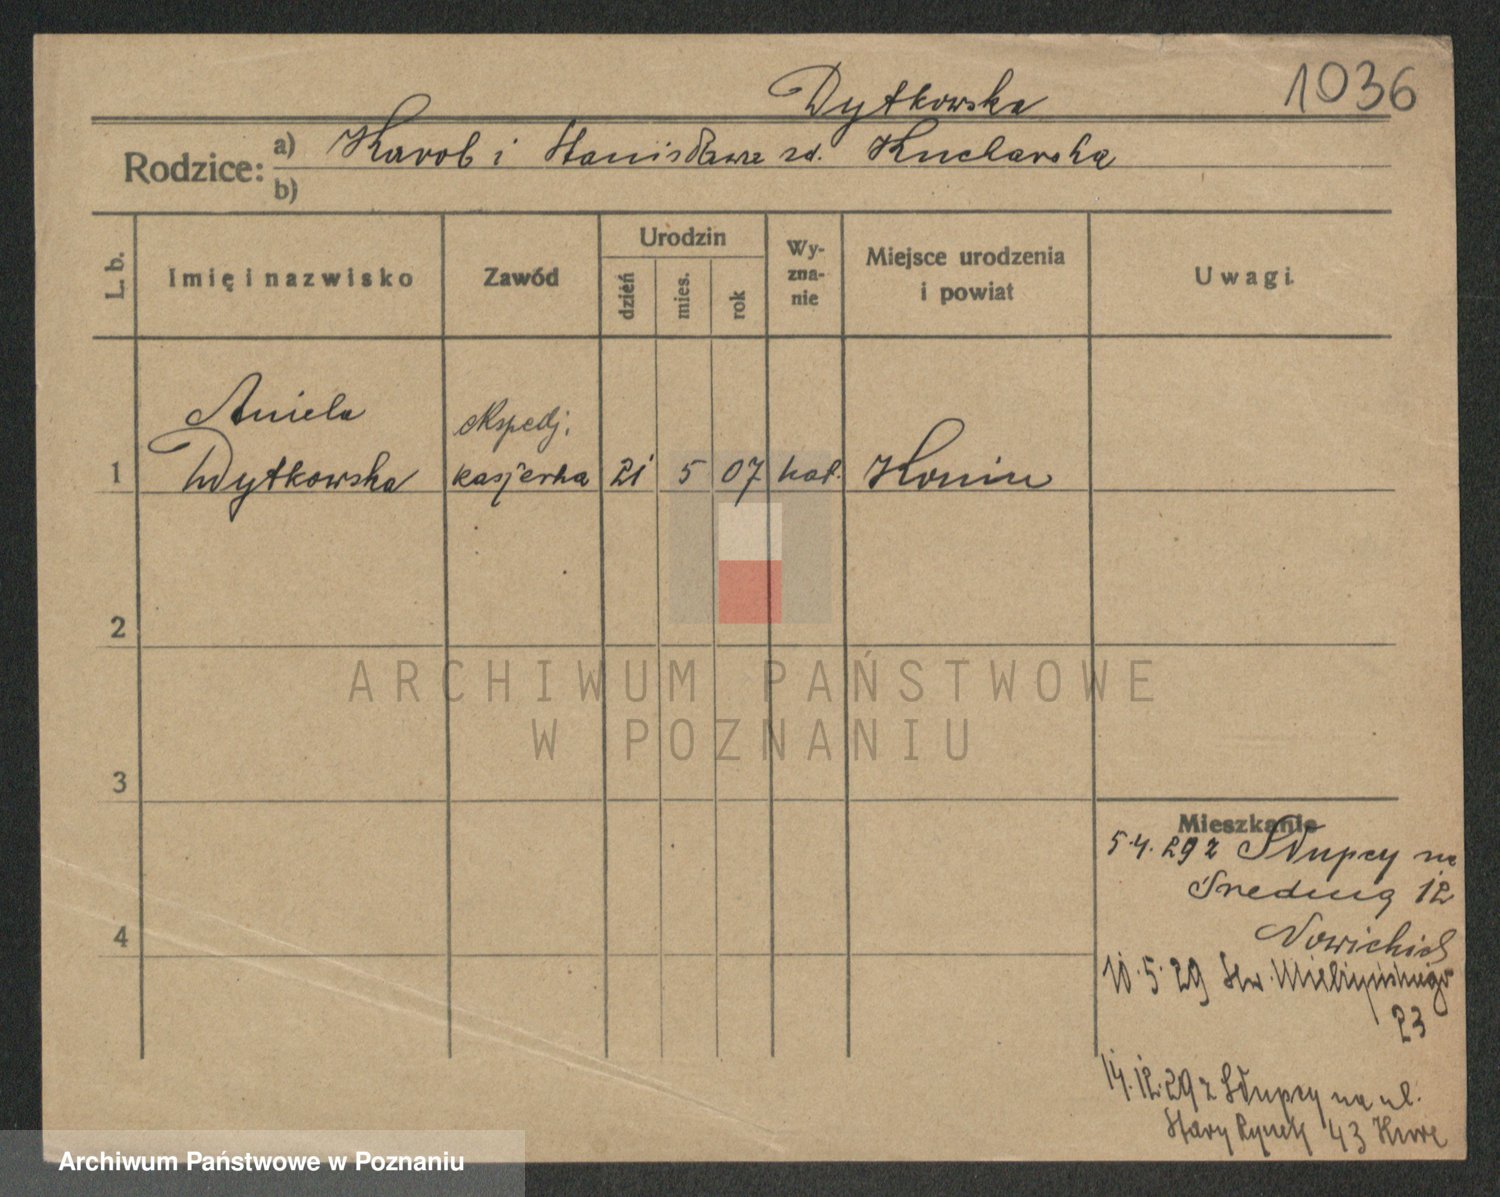 Dytkowska
1036
Rodzice:
a) Karol i Stanisława zd. Kucharska
b)
L. b.
Imię i nazwisko
Zawód
Urodzin
dzień
mies.
rok
Wy-
zna-
nie
Miejsce urodzenia
i powiat
Uwagi.
Aniela
ekspedj.
1 Dytkowska kasjerka 21 5 07 kat. Konin
2
3
4
Mieszkanie
5.4.29 z Słupcy na
Średnią 12
Nowickich
10.5.29 Mielżyńskiego
23
14.12.29 z Słupcy na ul.
Stary Rynek 43
ARCHIWUM PAŃSTWOWE
W POZNANIU
Archiwum Państwowe w Poznaniu